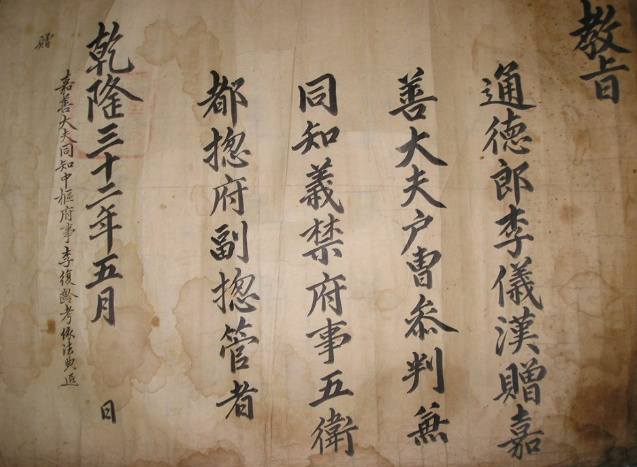 教旨
通德郎李儀漢贈嘉
善大夫戶曹叅判兼
同知義禁府事五衛
都揔府副揔管者
乾隆三十二年五月 日
嘉善大夫同知中樞府事李復齡考依法典追
贈